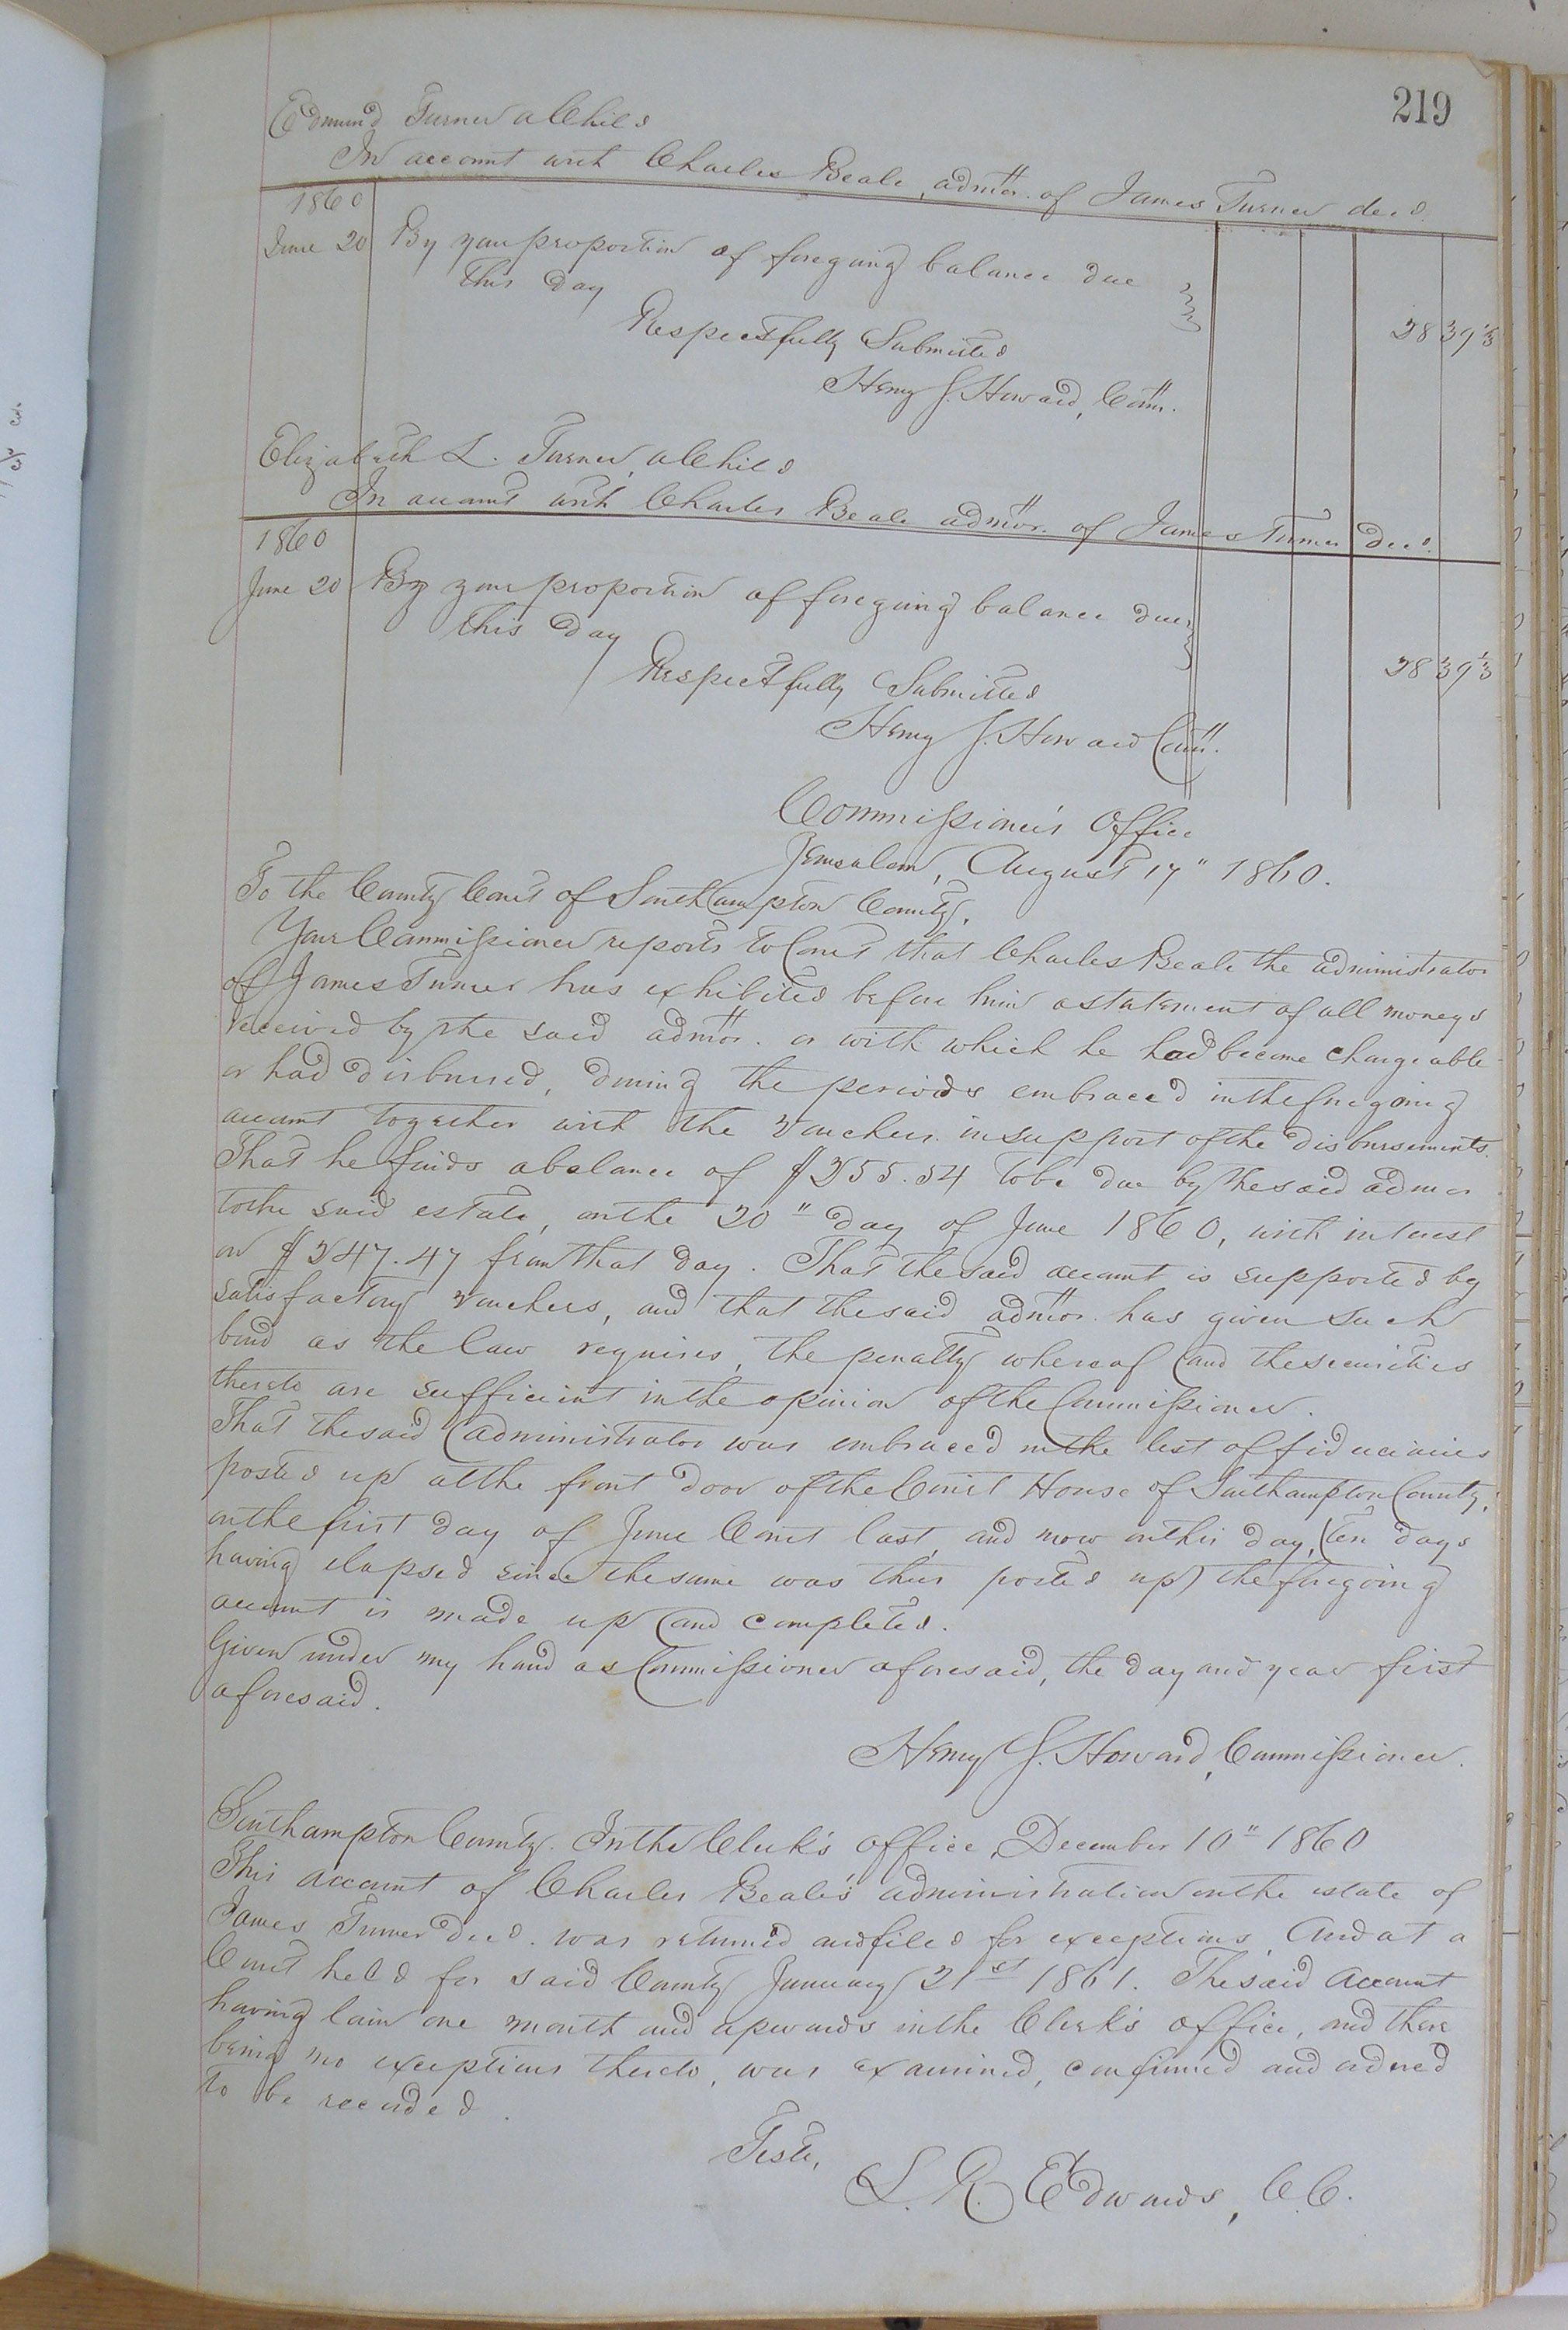 219
Edmund Turner a Child
In account with Charles Beale, admor. of James Turner decd.
1860
June 20 By your proportion of foregoing balance due
this day
28 39 1/3
Respectfully Submitted
Henry J. Howard, Comr.
Elizabeth L. Turner, a Child
In account with Charles Beale admor. of James Turner decd.
1860
June 20 By your proportion of foregoing balance due
this day
28 39 1/3
Respectfully Submitted
Henry J. Howard Comr.
Commissioner's Office
Jerusalem, August 17" 1860.
To the County Court of Southampton County.
Your Commissioner reports to Court that Charles Beale the administrator
of James Turner has exhibited before him a statement of all moneys
received by the said admor. or with which he had become chargeable
or had disbursed, during the periods embraced in the foregoing
account together with the vouchers in support of the disbursements.
That he finds a balance of $255.54 to be due by the said admor
to the said estate, on the 20" day of June 1860, with interest
on $247.47 from that day. That the said account is supported by
satisfactory vouchers, and that the said admor. has given such
bond as the law requires, the penalty whereof and the securities
thereto are sufficient in the opinion of the Commissioner.
That the said administrator was embraced in the list of fiduciaries
posted up at the front door of the Court House of Southampton County,
on the first day of June Court last, and now on this day, (ten days
having elapsed since the same was thus posted up) the foregoing
account is made up and completed.
Given under my hand as Commissioner aforesaid, the day and year first
aforesaid.
Henry J. Howard, Commissioner.
Southampton County. In the Clerk's office, December 10" 1860
This account of Charles Beale's administration on the estate of
James Turner decd. was returned and filed for exceptions. And at a
Court held for said County January 21st 1861. The said account
having lain one month and upwards in the Clerk's office, and there
being no exceptions thereto, was examined, confirmed and ordered
to be recorded.
Teste,
L. R. Edwards, C.C.